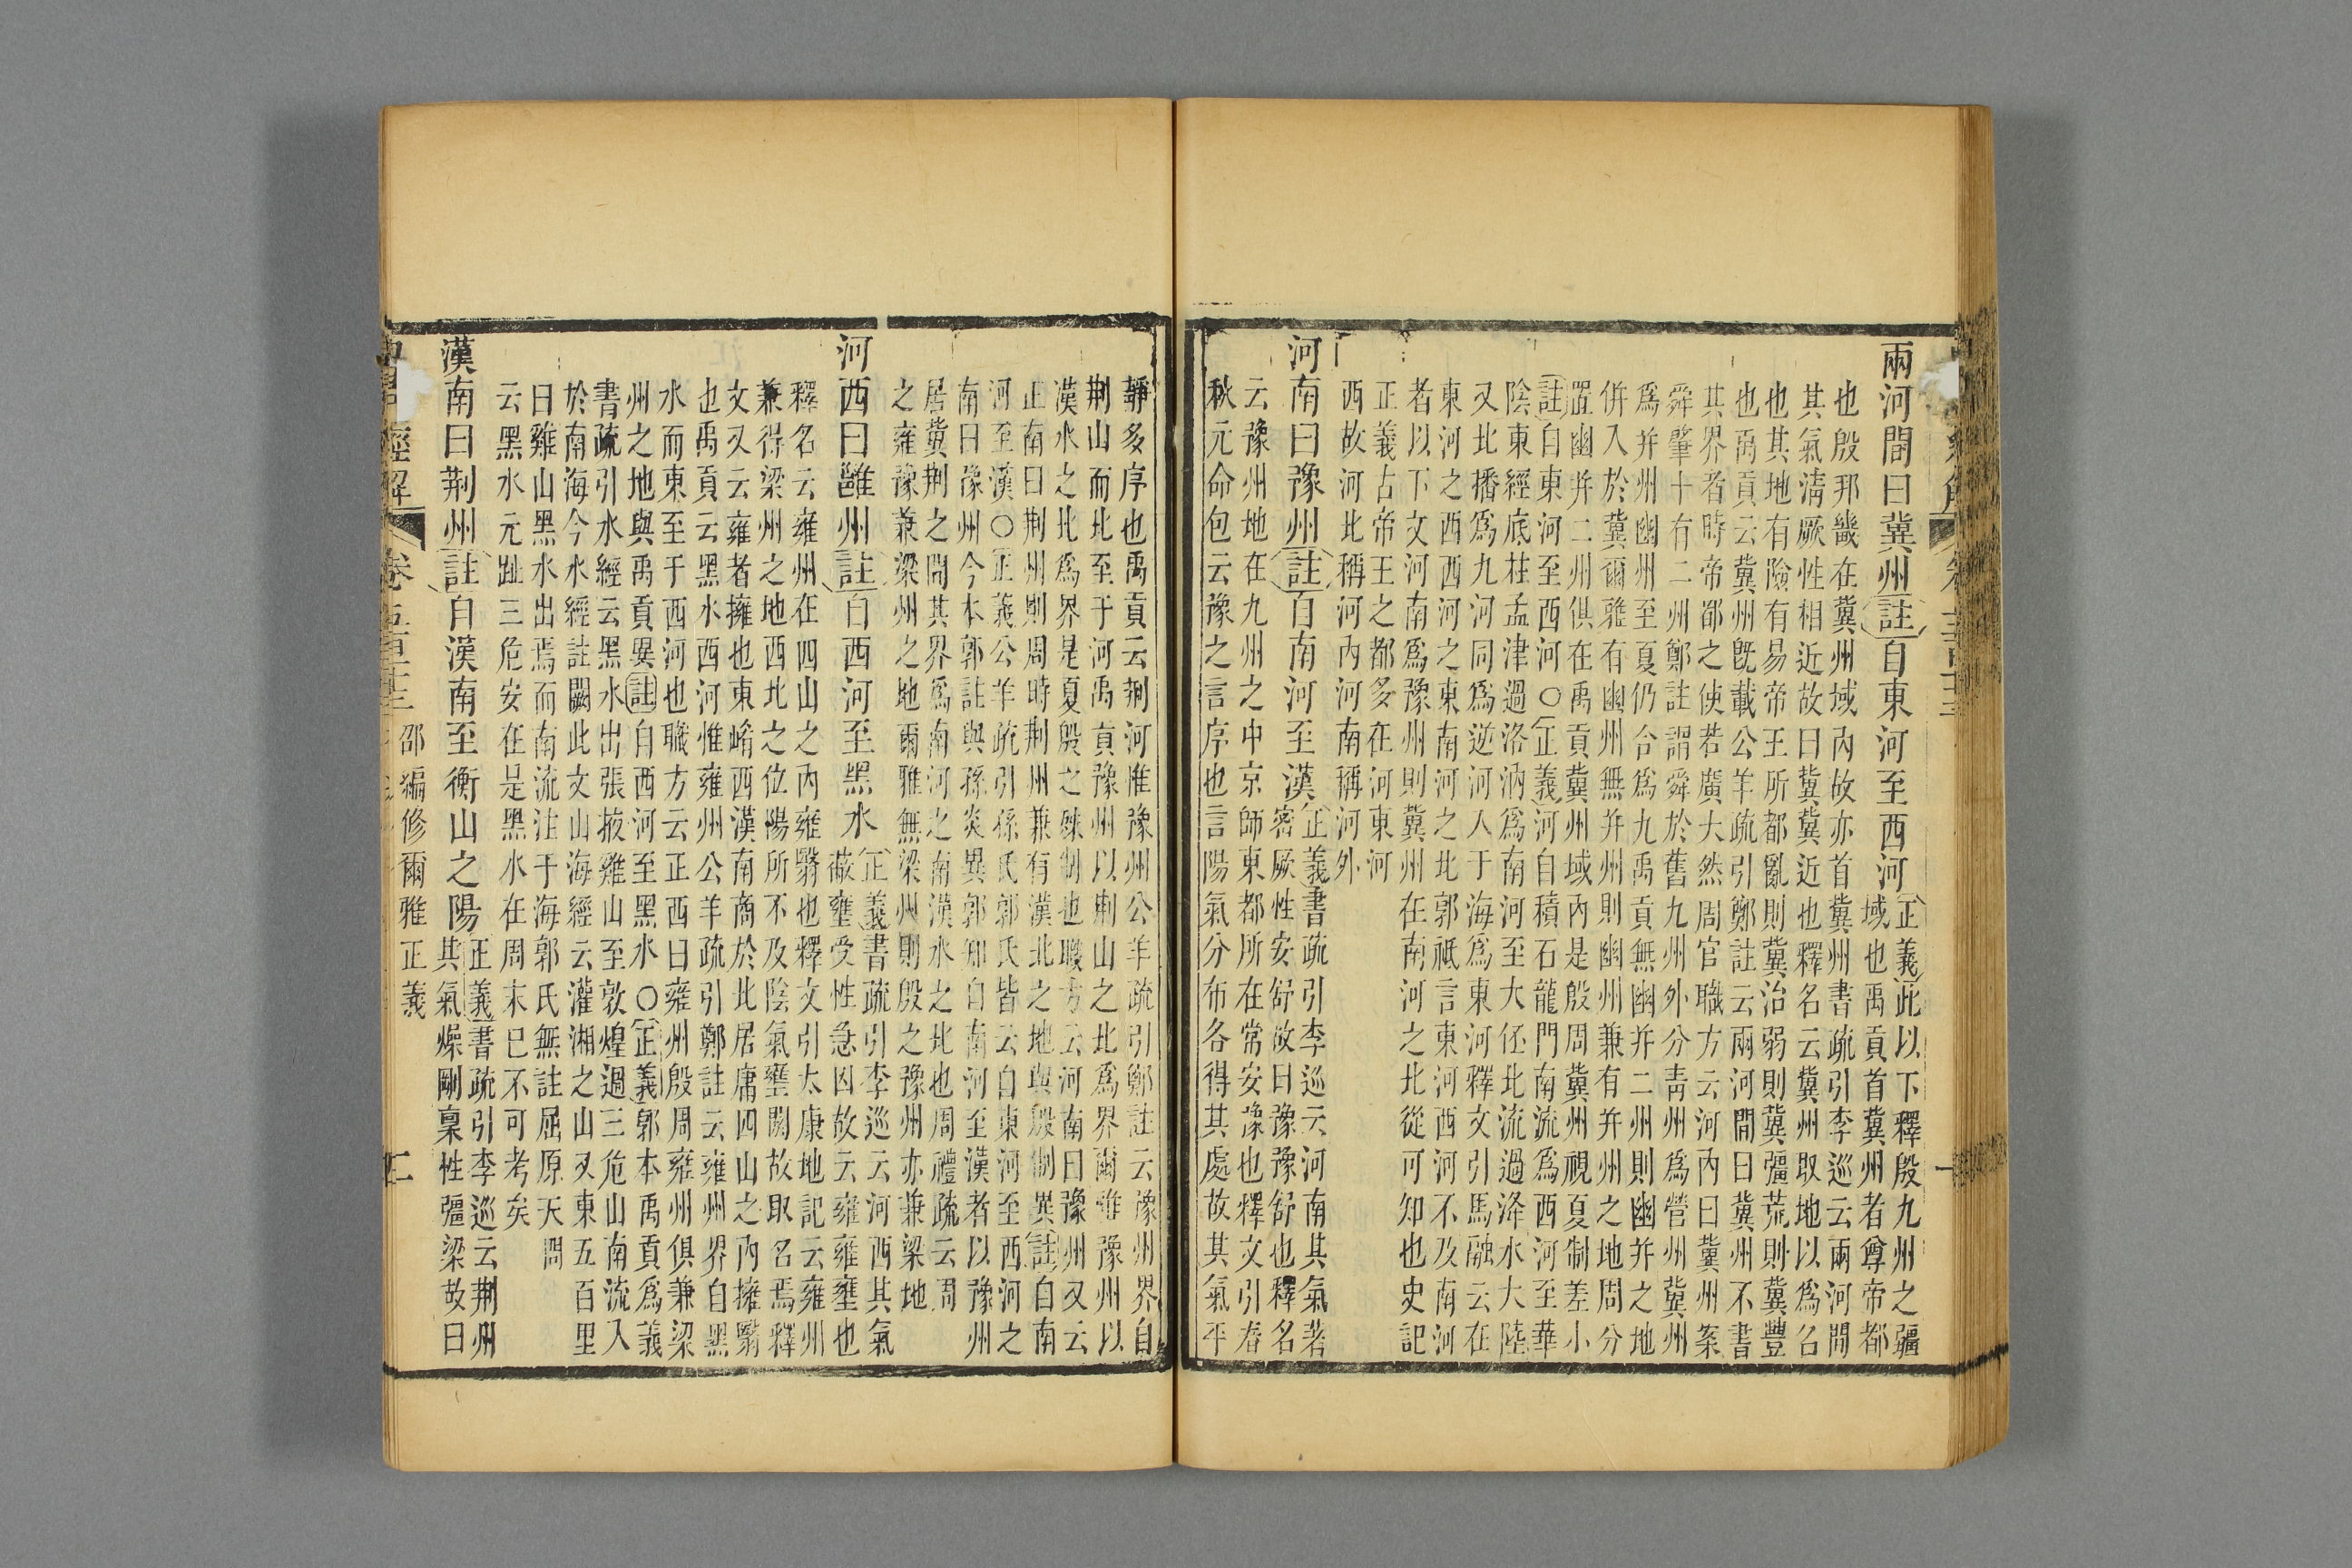 兩河間曰冀州註自東河至西河正義此以下釋殷九州之疆
域也禹貢首冀州者尊帝都
也殷邦畿在冀州域內故亦首冀州書疏引李巡云兩河間
其氣清厥性相近故曰冀冀近也釋名云冀州取地以為名
也其地有險有易帝王所都亂則冀治弱則冀彊荒則冀豐
也禹貢云冀州旣載公羊疏引鄭註云兩河間曰冀州不書
其界者時帝都之使若廣大然周官職方云河內曰冀州案
舜肇十有二州鄭註謂舜於舊九州外分青州為營州冀州
為并州幽州至夏仍合為九禹貢無幽并二州則幽并之地
併入於冀爾雅有幽州無并州則幽州兼有并州之地周分
置幽并二州俱在禹貢冀州域內是殷周冀州視夏制差小
註自東河至西河○正義河自積石龍門南流為西河至華
陰東經底柱孟津過洛汭為南河至大伾北流過洚水大陸
又北播為九河同為逆河入于海為東河釋文引馬融云在
東河之西西河之東南河之北郭祗言東河西河不及南河
者以下文河南為豫州則冀州在南河之北從可知也史記
正義占帝王之都多在河東河
西故河北稱河內河南稱河外
河南曰豫州註自南河至漢正義書疏引李巡云河南其氣著
密厥性安舒故曰豫豫舒也釋名
云豫州地在九州之中京師東都所在常安豫也釋文引春
秋元命包云豫之言序也言陽氣分布各得其處故其氣平
靜多序也禹貢云荆河惟豫州公羊疏引鄭註云豫州界自
荆山而北至于河禹貢豫州以荆山之北為界爾雅豫州以
漢水之北為界是夏殷之殊制也職方云河南曰豫州又云
正南曰荆州則周時荆州兼有漢北之地與殷制異註自南
河至漢○正義公羊疏引孫氏郭氏皆云自東河至西河之
南曰豫州今本郭註與孫炎異郭知自南河至漢者以豫州
居冀荆之間其界為南河之南漢水之北也周禮疏云周
之雍豫兼梁州之地爾雅無梁州則殷之豫州亦兼梁地
河西曰雝州註自西河至黑水正義書疏引李巡云河西其氣
蔽壅受性急凶故云雍雍壅也
釋名云雍州在四山之內雍翳也釋文引太康地記云雍州
兼得梁州之地西北之位陽所不及陰氣壅閼故取名焉釋
文又云雍者擁也東崤西漢南商於北居庸四山之內擁翳
也禹貢云黑水西河惟雍州公羊疏引鄭註云雍州界自黑
水而東至于西河也職方云正西曰雍州殷周雍州俱兼梁
州之地與禹貢異註自西河至黑水○正義郭本禹貢為義
書疏引水經云黑水出張掖雞山至敦煌過三危山南流入
於南海今水經註闕此文山海經云灌湘之山又東五百里
曰雞山黑水出焉而南流注于海郭氏無註屈原天問
云黑水元趾三危安在是黑水在周末已不可考矣
漢南曰荆州註自漢南至衡山之陽正義書疏引李巡云荆州
其氣燥剛稟性彊梁故曰
經解 卷五百十三 邵編修爾雅正義 二